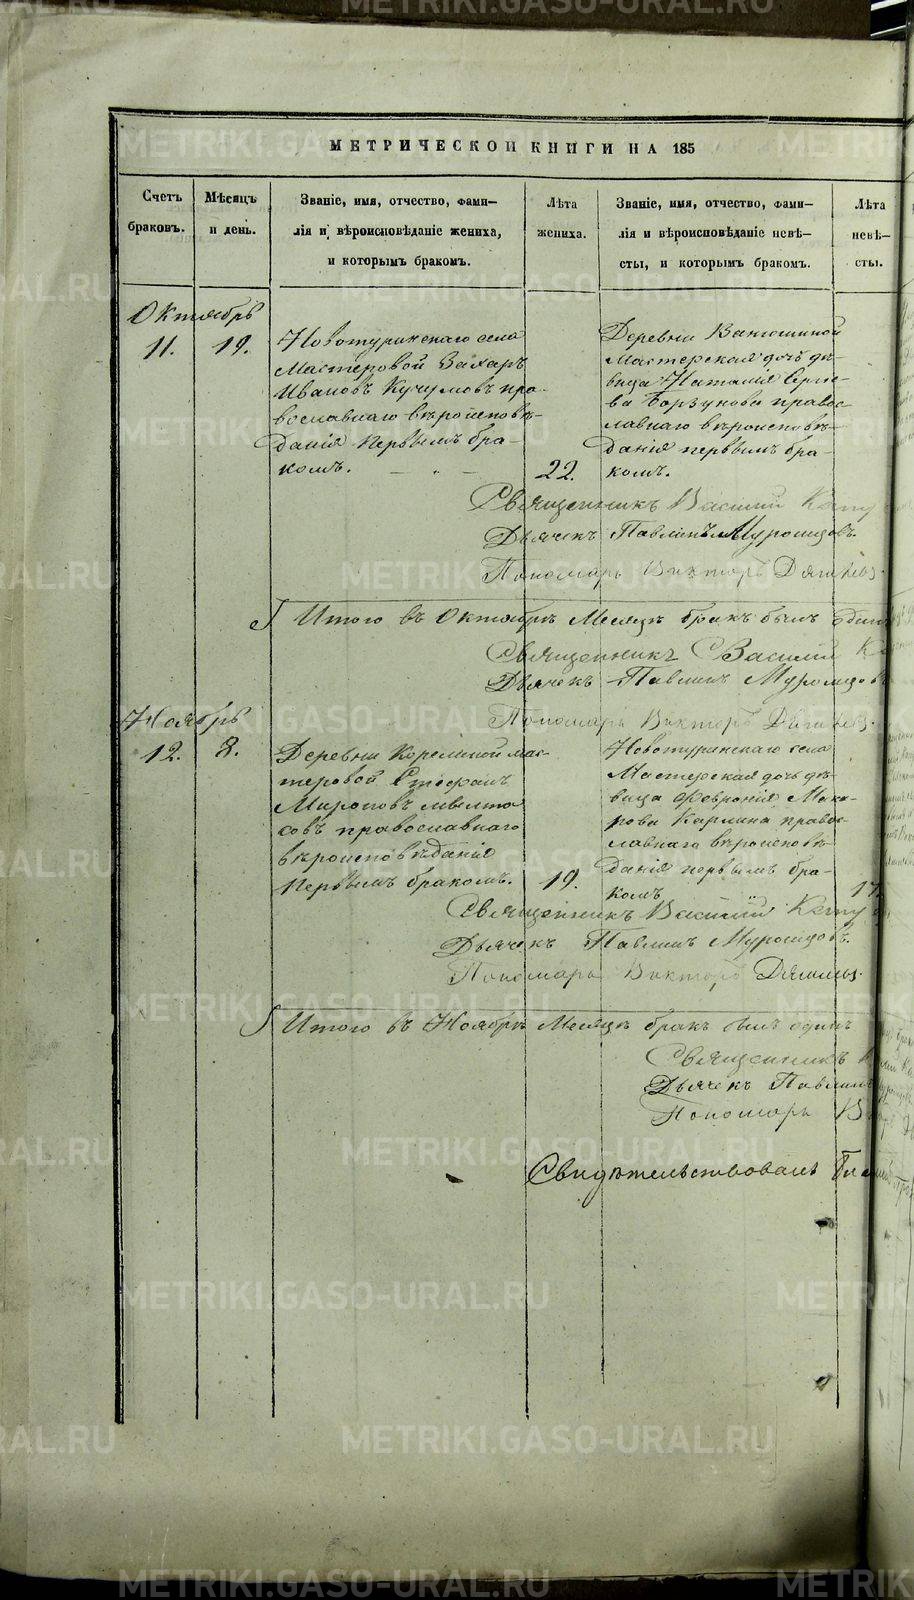 МЕТРИЧЕСКОЙ КНИГИ НА 185
Счетъ браковъ.
Мѣсяцъ и день.
Званіе, имя, отчество, фами-
лія и вѣроисповѣданіе жениха,
и которымъ бракомъ.
Лѣта
жениха.
Званіе, имя, отчество, фами-
лія и вѣроисповѣданіе невѣ-
сты, и которымъ бракомъ.
Лѣта
невѣ-
сты.
Октябрь
11. 19.
Новотуринскаго села
Мастеровой Захаръ
Ивановъ Кучумовъ пра-
вославнаго вѣроисповѣ-
данія первымъ бра-
комъ.
22.
Деревни
Мастерская дочь дѣ-
вица Наталия Сергѣ-
ва Борзунова правос-
лавнаго вѣроисповѣ-
данія первымъ бра-
комъ.
Священникъ Василий
Дьячекъ Павлинъ
Пономарь Викторъ
Итого въ Октябрѣ Месяцѣ бракъ былъ один
Священникъ Василий
Дьячекъ Павлинъ
Пономарь Викторъ
Ноябрь
12. 8.
Деревни мас-
теровой Стефанъ
Мироновъ
православнаго
вѣроисповѣданія
первымъ бракомъ.
19.
Новотуринскаго села
Мастерская дочь дѣ-
вица Феврония Мака-
рова Карпина правос-
лавнаго вѣроисповѣ-
данія первымъ бра-
комъ
17.
Священникъ Василий
Дьячекъ Павлинъ
Пономарь Викторъ
Итого въ Ноябрѣ Месяцѣ бракъ былъ одинъ
Священникъ
Дьячекъ Павлин
Пономарь В
Свидѣтельствовалъ
METRIKI.GASO-URAL.RU